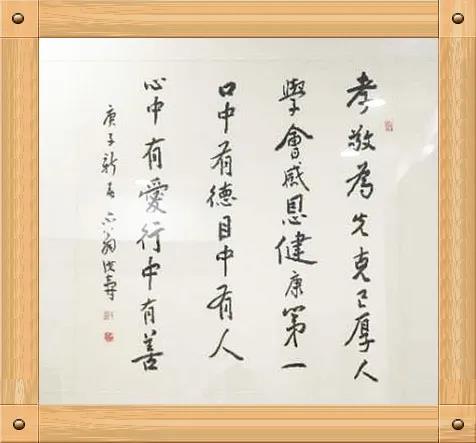 孝敬為先克己厚人
學會感恩健康第一
口中有德目中有人
心中有愛行中有善
庚子新春